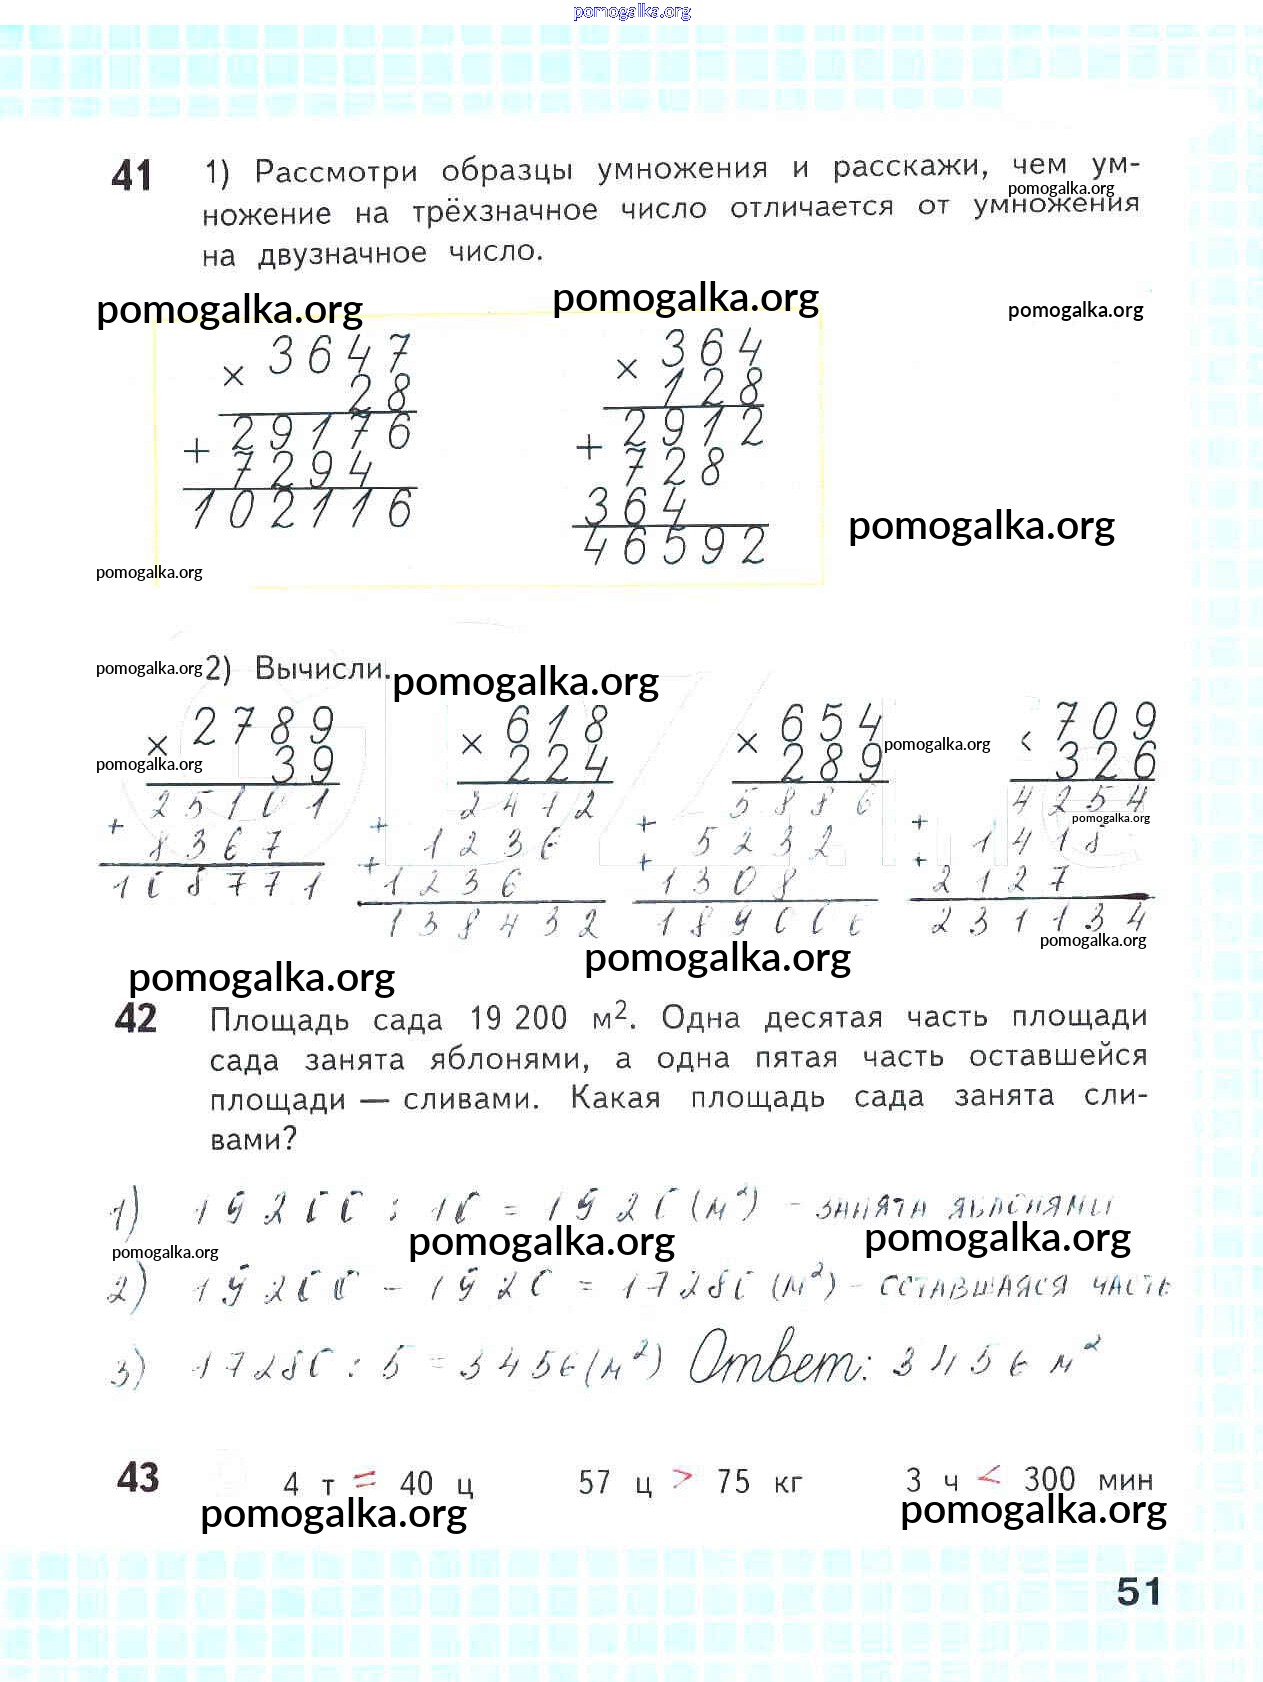 pomogalka.org
41 1) Рассмотри образцы умножения и расскажи, чем ум-
pomogalka.org
ножение на трёхзначное число отличается от умножения
на двузначное число.
pomogalka.org pomogalka.org pomogalka.org
× 3647
28
+ 29176
7294
102116
× 364
128
+ 2912
728
364
46592
pomogalka.org
pomogalka.org
pomogalka.org 2) Вычисли. pomogalka.org
× 2789
pomogalka.org 39
25101
+ 8367
108771
× 618
224
2472
+ 1236
+ 1236
138432
× 654
pomogalka.org
289
5886
+ 5232
+ 1308
189006
× 709
326
4254
pomogalka.org
+ 1418
+ 2127
231134
pomogalka.org
pomogalka.org pomogalka.org
42 Площадь сада 19 200 м². Одна десятая часть площади
сада занята яблонями, а одна пятая часть оставшейся
площади — сливами. Какая площадь сада занята сли-
вами?
1) 19200 : 10 = 1920 (м²) - занята яблонями
pomogalka.org pomogalka.org pomogalka.org
2) 19200 - 1920 = 17280 (м²) - оставшаяся часть
3) 17280 : 5 = 3456 (м²) Ответ: 3456 м²
43 4 т = 40 ц 57 ц > 75 кг 3 ч < 300 мин
pomogalka.org pomogalka.org
51